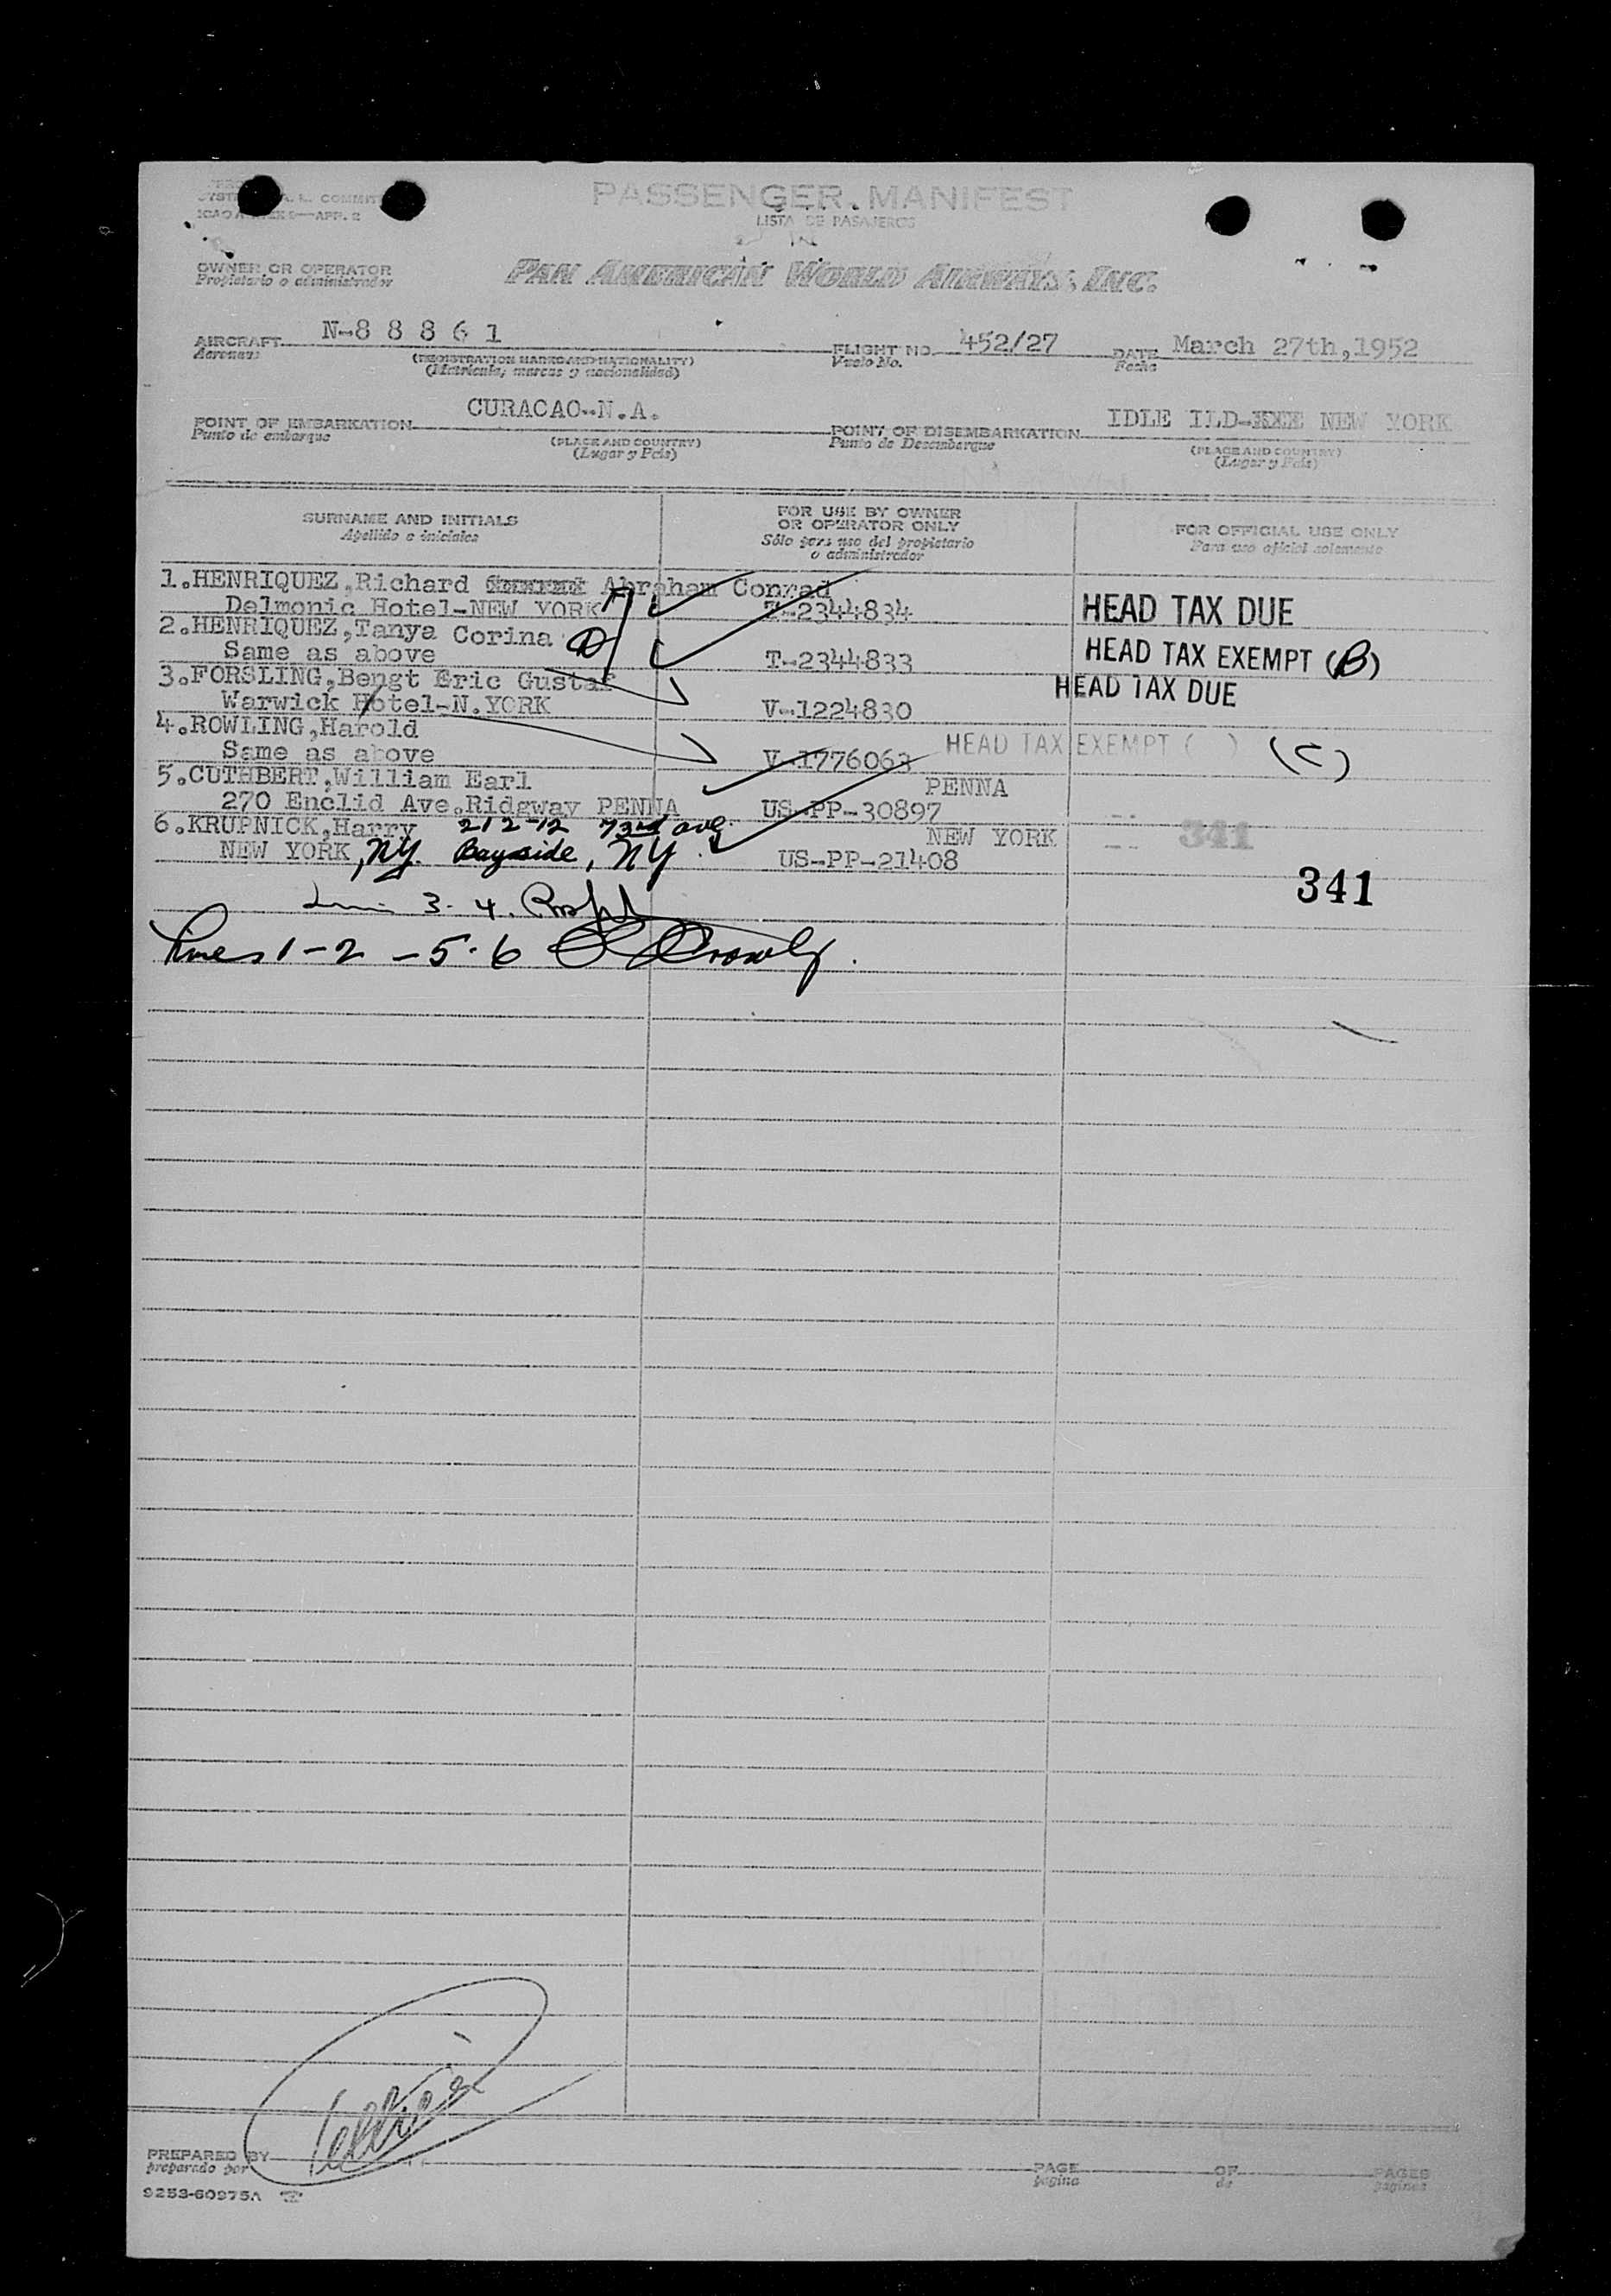 PASSENGER MANIFEST
LISTA DE PASAJEROS
ICAO ANNEX 9—APP. 2
OWNER OR OPERATOR
Propietario o administrador
PAN AMERICAN WORLD AIRWAYS, INC.
AIRCRAFT N-8 8 8 6 1 FLIGHT NO. 452/27 DATE March 27th,1952
Aeronave (REGISTRATION MARKS AND NATIONALITY) Vuelo No. Fecha
(Matricula, marcas y nacionalidad)
POINT OF EMBARKATION CURACAO--N.A. POINT OF DISEMBARKATION IDLE ILD- NEW YORK
Punto de embarque (PLACE AND COUNTRY) Punto de Desembarque (PLACE AND COUNTRY)
(Lugar y Pais) (Lugar y Pais)
SURNAME AND INITIALS FOR USE BY OWNER OR OPERATOR ONLY FOR OFFICIAL USE ONLY
Apellido e iniciales Sólo para uso del propietario o administrador Para uso oficial solamente
1.HENRIQUEZ,Richard Abraham Conrad
Delmonic Hotel-NEW YORK T-2344834 HEAD TAX DUE
2.HENRIQUEZ,Tanya Corina
Same as above T-2344833 HEAD TAX EXEMPT (B)
3.FORSLING,Bengt Eric Gustaf HEAD TAX DUE
Warwick Hotel-N.YORK V-1224830
4.ROWLING,Harold
Same as above V-1776063 HEAD TAX EXEMPT ( ) (C)
5.CUTHBERT,William Earl PENNA
270 Enclid Ave.Ridgway PENNA US-PP-30897
6.KRUPNICK,Harry 212-12 73rd ave. NEW YORK 341
NEW YORK, NY. Bayside, NY. US-PP-21408
341
3. 4.
lines 1-2 -5-6
PREPARED BY PAGE OF PAGES
preparado por pagina de paginas
9253-60975A